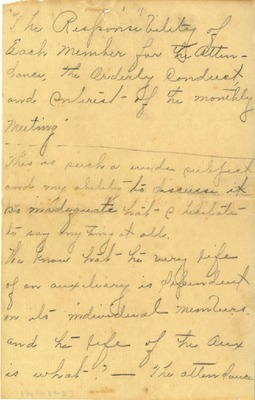 "The Responsebility of
Each Member for the Atten-
dance, the Orderly Conduct
and Interest of the monthly
Meeting"
This is such a wide subject
and my ability to discuss it
so inadequate that I hesitate
to say anything at all.
We know that the very life
of an auxiliary is dependent
on its individual members.
and the life of the Aux
is what? — The attendance